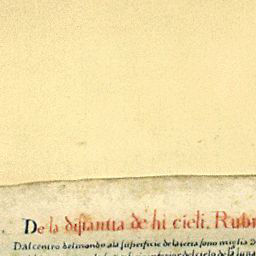 De la distantia de hi cieli. Rubr
Dal centro del mondo ala superficie de la terra sono miglia 3
del cielo de la luna